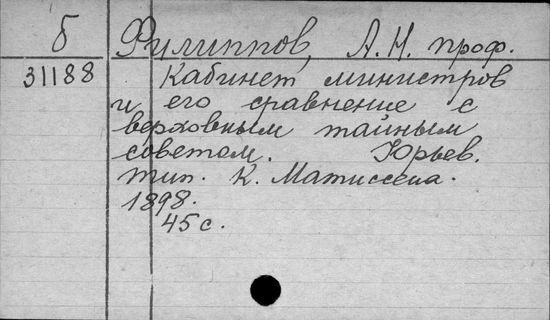 Б Филиппов, А. Н. проф.
31188 Кабинет министров
и его сравнение с
верховным тайным
советом. Юрьев.
тип. К. Матиссена.
1898.
45 с.